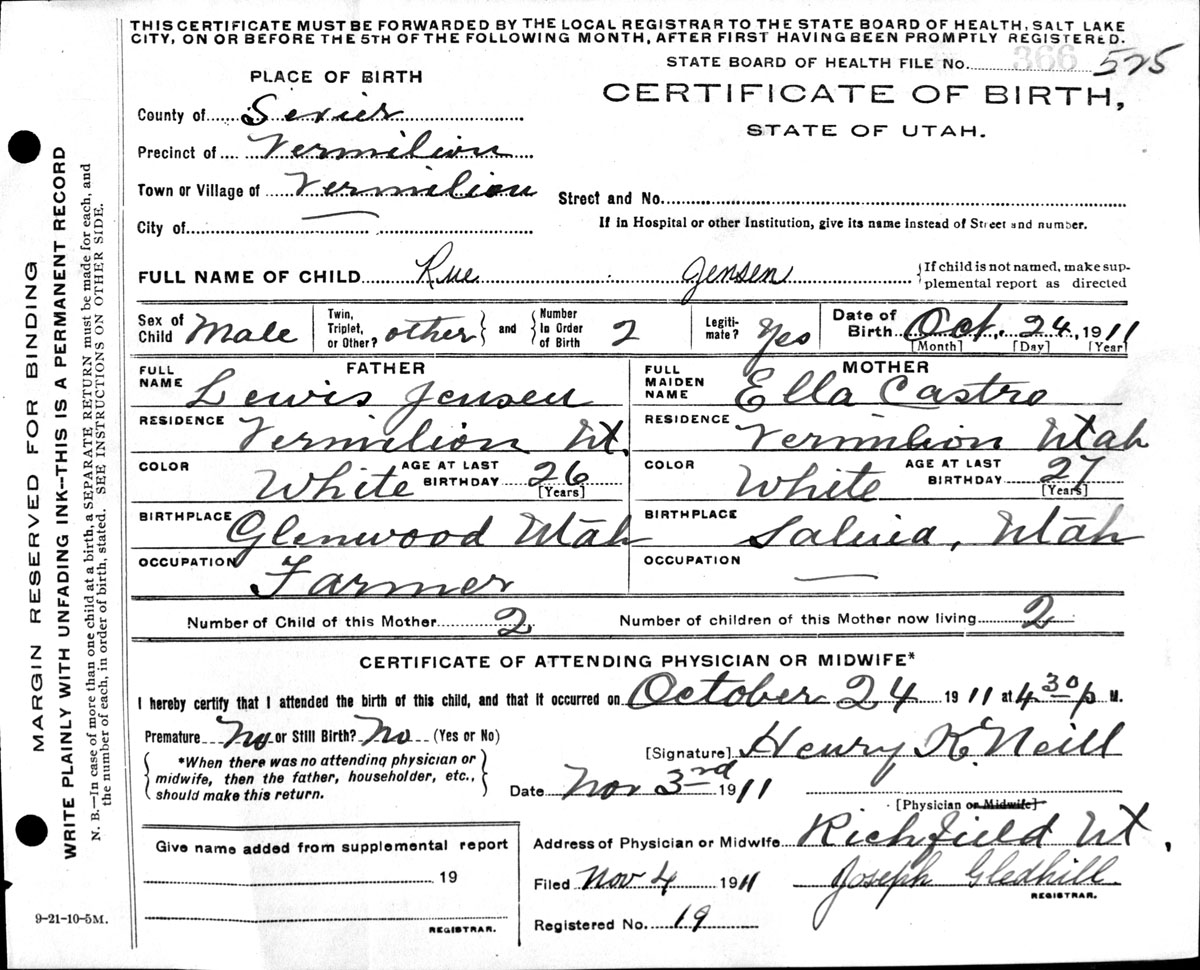 THIS CERTIFICATE MUST BE FORWARDED BY THE LOCAL REGISTRAR TO THE STATE BOARD OF HEALTH, SALT LAKE
CITY, ON OR BEFORE THE 5TH OF THE FOLLOWING MONTH, AFTER FIRST HAVING BEEN PROMPTLY REGISTERED.
STATE BOARD OF HEALTH FILE No. 366 525
PLACE OF BIRTH
CERTIFICATE OF BIRTH,
STATE OF UTAH.
County of Sevier
Precinct of Vermilion
Town or Village of Vermilion
Street and No.
City of
If in Hospital or other Institution, give its name instead of Street and number.
FULL NAME OF CHILD Rue Jensen {If child is not named, make sup-
plemental report as directed
Sex of Child Male Twin, Triplet, or Other? other } and { Number In Order of Birth 2 Legiti-mate? Yes Date of Birth Oct. 24, 1911
[Month] [Day] [Year]
FATHER MOTHER
FULL NAME Lewis Jensen FULL MAIDEN NAME Ella Castro
RESIDENCE Vermilion Ut. RESIDENCE Vermilion Utah
COLOR White AGE AT LAST BIRTHDAY 26 [Years] COLOR White AGE AT LAST BIRTHDAY 27 [Years]
BIRTHPLACE Glenwood Utah BIRTHPLACE Salina, Utah
OCCUPATION Farmer OCCUPATION
Number of Child of this Mother 2 Number of children of this Mother now living 2
CERTIFICATE OF ATTENDING PHYSICIAN OR MIDWIFE*
I hereby certify that I attended the birth of this child, and that it occurred on October 24 1911 at 4 30 p M.
Premature No or Still Birth? No (Yes or No)
[Signature] Henry K. Neill
*When there was no attending physician or
midwife, then the father, householder, etc.,
should make this return.
Date Nov 3rd 1911
[Physician or Midwife]
Address of Physician or Midwife Richfield Ut,
Give name added from supplemental report
19
REGISTRAR.
Filed Nov 4 1911 Joseph Gledhill
REGISTRAR.
Registered No. 19
9-21-10-5M.
MARGIN RESERVED FOR BINDING
WRITE PLAINLY WITH UNFADING INK--THIS IS A PERMANENT RECORD
N. B.—In case of more than one child at a birth, a SEPARATE RETURN must be made for each, and
the number of each, in order of birth, stated. SEE INSTRUCTIONS ON OTHER SIDE.